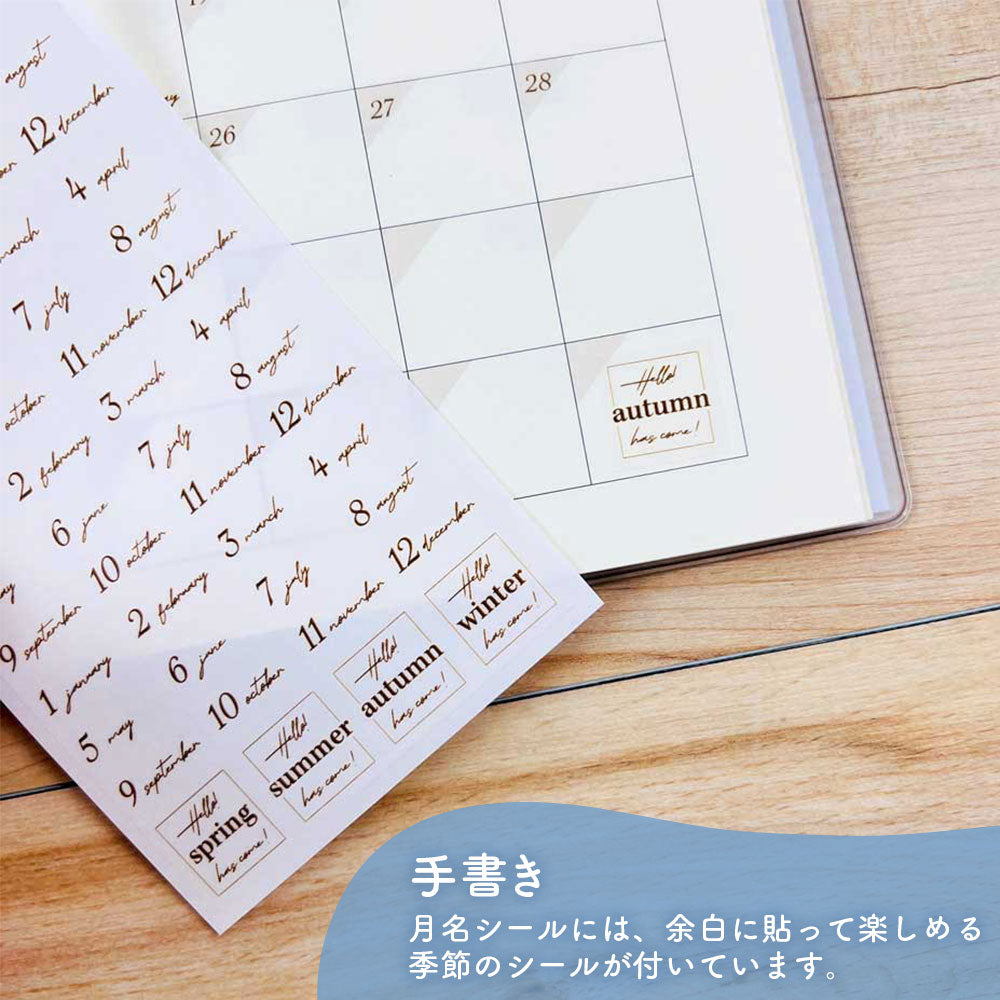 august
12 december
4 april
march
8 august
7 july
12 december
11 november
4 april
october
3 march
8 august
2 february
7 july
12 december
6 june
11 november
4 april
10 october
3 march
8 august
9 september
2 february
7 july
12 december
1 january
6 june
11 november
5 may
10 october
9 september
Hello!
spring
has come!
Hello!
summer
has come!
Hello!
autumn
has come!
Hello!
winter
has come!
26
27
28
Hello!
autumn
has come!
手書き
月名シールには、余白に貼って楽しめる
季節のシールが付いています。